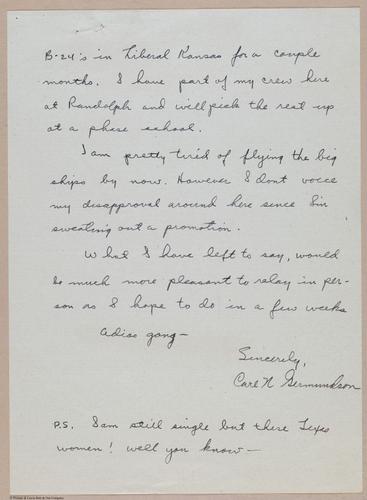 B-24's in Liberal Kansas for a couple
months. I have part of my crew here
at Randolph and will pick the rest up
at a phase school.
I am pretty tired of flying the big
ships by now. However I dont voice
my disapproval around here since I'm
sweating out a promotion.
What I have left to say, would
be much more pleasant to relay in per-
son as I hope to do in a few weeks
Adios gang—
Sincerely,
Carl N Germundson
P.S. I am still single but these Texas
women! well you know—